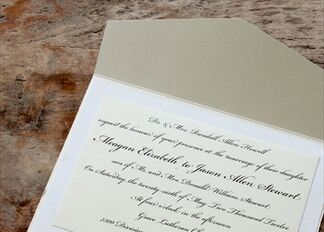 Dr. & Mrs. Randall Allen Howell
request the honour of your presence at the marriage of their daughter
Meagan Elizabeth to Jason Allen Stewart
son of Mr. and Mrs. Donald William Stewart.
On Saturday, the twenty-sixth of May Two Thousand Twelve
At four o'clock in the afternoon
Grace Lutheran